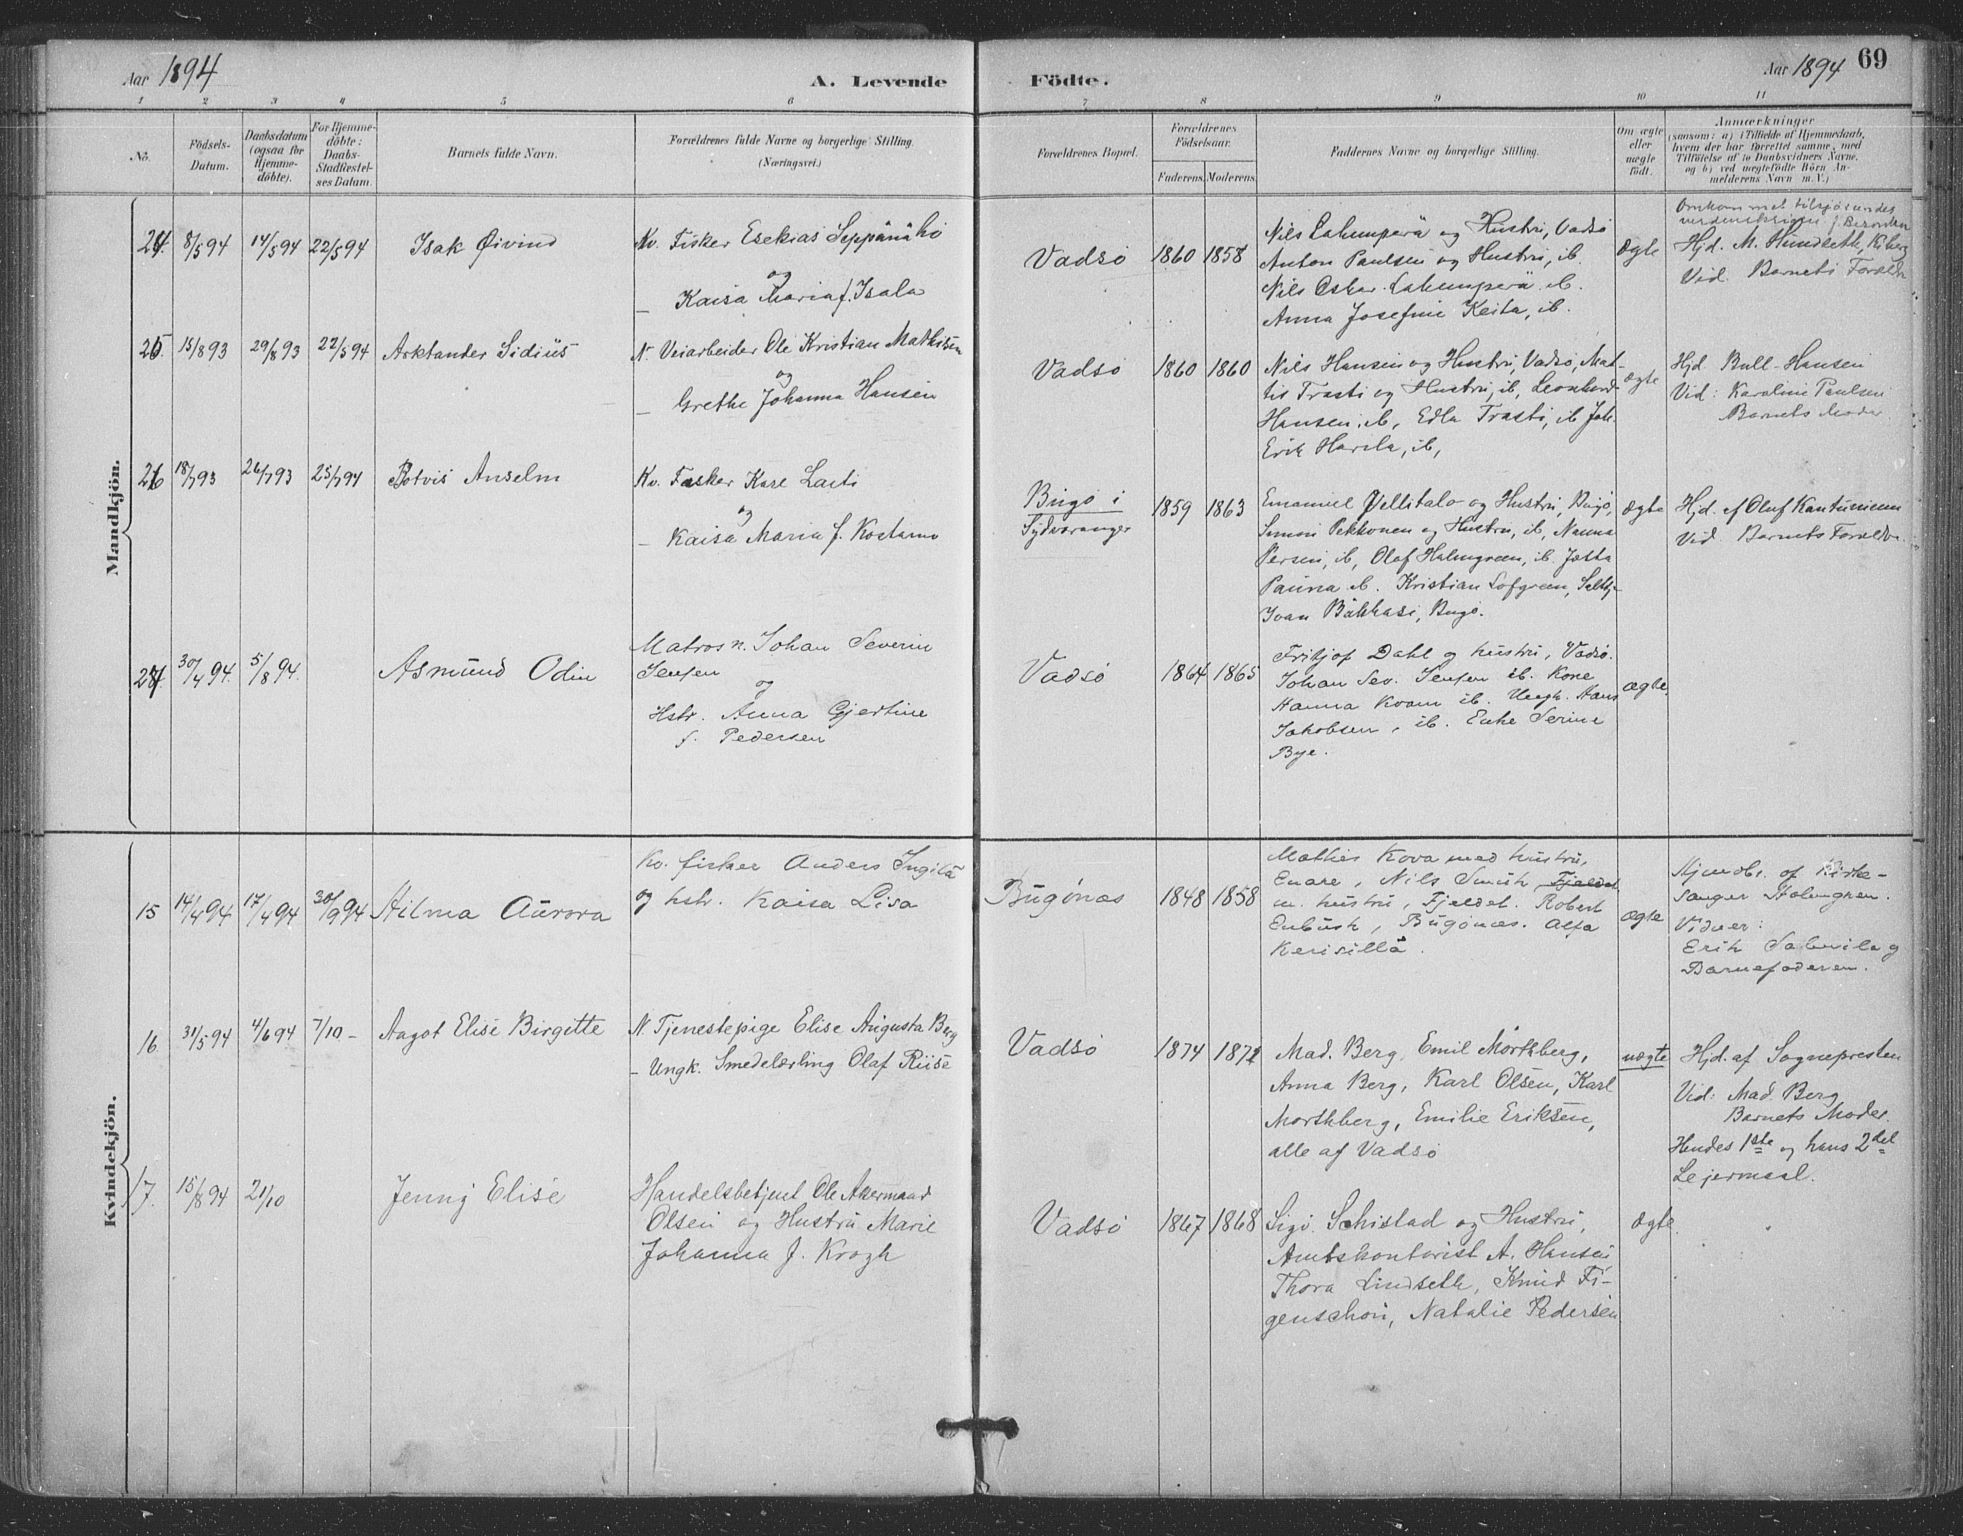 Aar 1894
A. Levende
Födte.
Aar 1894
69
1 2 3 4 5 6 7 8 9 10 11
No.
Födsels-
Datum.
Daabsdatum
(ogsaa for
Hjemme-
döbte).
For Hjemme-
döbte:
Daabs-
Stadfæstel-
ses Datum.
Barnets fulde Navn.
Forældrenes fulde Navne og borgerlige Stilling.
(Næringsvei.)
Forældrenes Bopæl.
Forældrenes
Födselsaar.
Faderens. Moderens.
Faddernes Navne og borgerlige Stilling.
Om ægte
eller
uægte
födt.
Anmærkninger
(saasom: a) i Tilfælde af Hjemmedaab,
hvem der har forrettet samme, med
Tilföielse af to Daabsvidners Navne,
og b) ved uægtefödte Börn An-
melderens Navn m. V.)
Mandkjön.
24. 8/5 94 14/5 94 22/5 94 Isak Øivind
Kv. Fisker Esekias Seppänäho
og
Kaisa Maria f. Isala
Vadsö 1860 1858
Nils Lahenperä og Hustru, Vadsö
Anton Paulsen og Hustru, ib.
Nils Oskar Lahenperä ib.
Anna Josefine Keita, ib.
Ægte
Omkom med
Hjd. M. Hundseth, Kiberg
Vid. Barnets Foræld
25. 15/8 93 29/8 93 22/5 94 Arktander Sidius
N. Veiarbeider Ole Kristian Mathisen
og
Grethe Johanna Hansen
Vadsö 1860 1860
Nils Hansen og Hustru, Vadsö, Mat-
tis Trasti og Hustru, ib, Leonhard
Hansen, ib, Edla Trasti, ib Joh.
Erik Harila, ib,
ægte
Hjd. Bull-Hansen
Vid: Karoline Paulsen
Barnets Moder
26 18/7 93 26/7 93 25/7 94 Botvis Anselm
Kv. Fisker Karl Lasti
og
Kaisa Maria f. Kostamo
Bugö i
Sydvaranger
1859 1863
Emanuel Yellitalo og Hustru, Bugö,
Simon Pekkonen og Hustru, ib, Nanna
Persen, ib, Olaf Holmgreen, ib. Jotta
Pauna ib. Kristian Lofgreen,
Ivan Bäkkasi, Bugö.
Ægte
Hjd. af Oluf Kantunieam
Vid. Barnets Foræld
27. 30/4 94. 5/8 94. Asmund Odin
Matros n. Johan Severin
Jensen
og
Hstr. Anna Gjertine
f. Pedersen
Vadsö 1864 1865
Fritjof Dahl og hustru, Vadsö.
Johan Sev. Jensen ib. Kone
Hanna Kvam ib. Ungk. Hans
Jakobsen, ib. Enke Serine
Bye.
ægte.
Kvindekjön.
15 14/4 94 17/4 94 30/9 94 Hilma Aurora
Kv. fisker Anders Ingilä
og hst. Kaisa Lisa
Bugönæs 1848 1858
Mathis Kova med hustru,
Enare, Nils Smuk, Fjeldet
m. hustru, Fjeldet. Robert
Enbusk, Bugönæs. Alfa
Kerisillä.
ægte
Hjemdbt. af Kirke-
sanger Holmgren.
Vidner:
Erik Salmila og
Barnefaderen.
16 31/5 94 4/6 94 7/10 - Aagot Elise Birgitte
N. Tjenestepige Elise Augusta Berg
- Ungk. Smedelærling Olaf Riise
Vadsö 1874 1872
Mad. Berg, Emil Mörthberg,
Anna Berg, Karl Olsen, Karl
Morthberg, Emilie Eriksen,
alle af Vadsö
uægte
Hjd. af Sognepresten
Vid: Mad. Berg
Barnets Moder
Hendes 1ste og hans 2det
Lejermaal.
17. 15/8 94 21/10 Jenny Elise
Handelsbetjent Ole Akermand
Olsen og Hustru Marie
Johanna f. Krogh
Vadsö 1867 1868
Sigv. Schistad og Hustru,
Amtskontorist A. Hansen
Thora Lindseth, Knud Fi-
genschou, Natalie Pedersen
Ægte